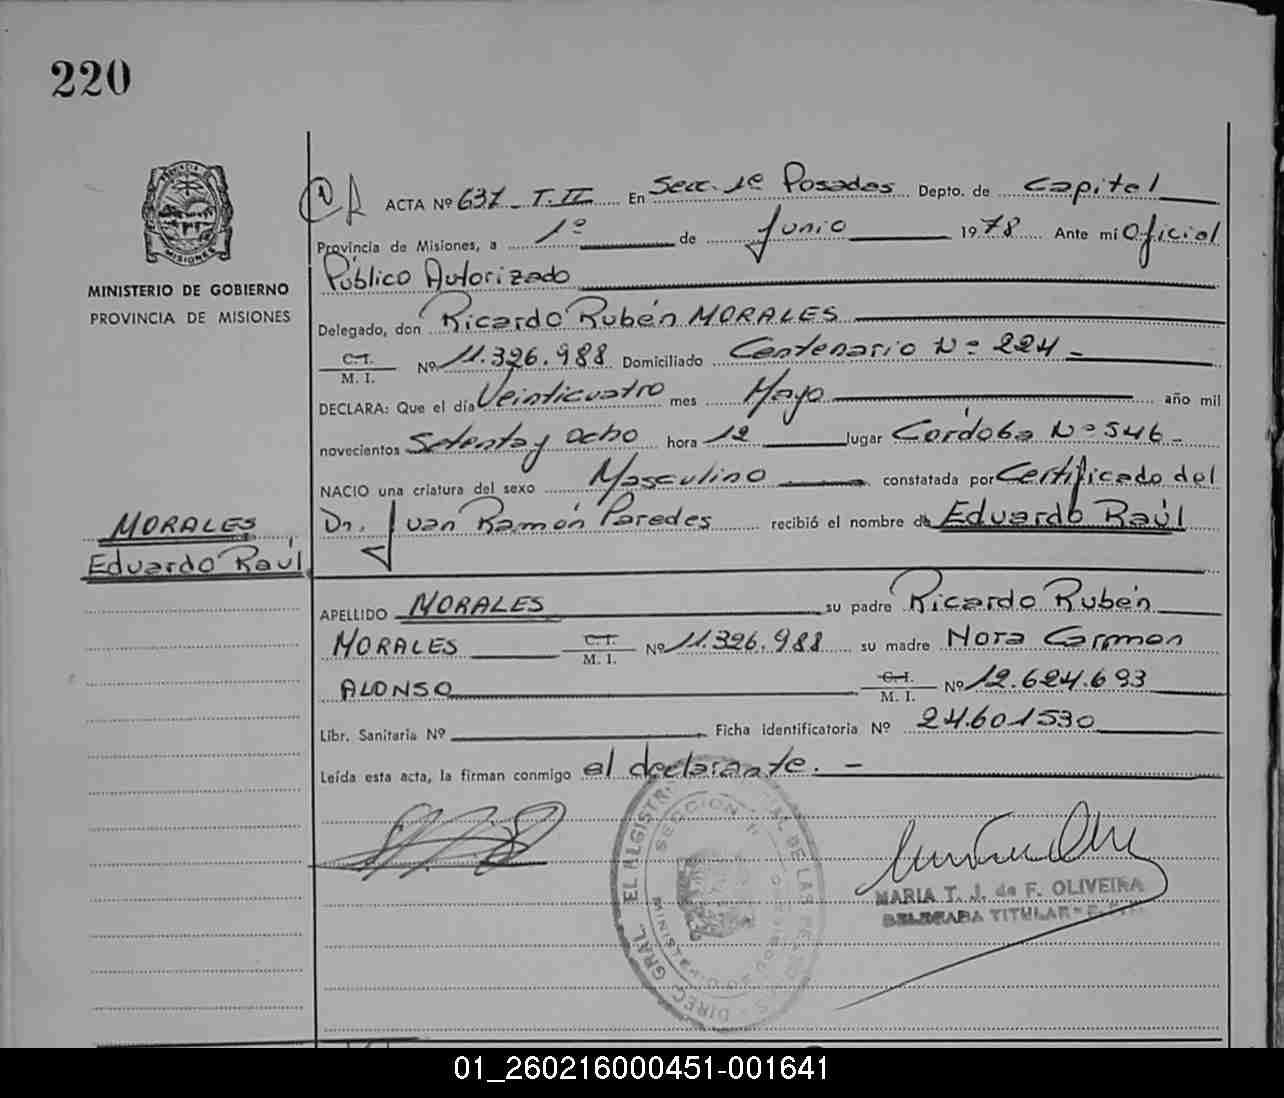 220
PROVINCIA DE
MISIONES
MINISTERIO DE GOBIERNO
PROVINCIA DE MISIONES
MORALES
Eduardo Raúl
ACTA Nº 637 - T. II En Secc. 1ª Posadas Depto. de Capital
Provincia de Misiones, a 1º de Junio 1978 Ante mi Oficial
Público Autorizado
Delegado, don Ricardo Rubén MORALES
C.I.
M. I. Nº 11.326.988 Domiciliado Centenario Nº 224 -
DECLARA: Que el día Veinticuatro mes Mayo año mil
novecientos Setenta y ocho hora 12 lugar Córdoba Nº 546 -
NACIO una criatura del sexo Masculino constatada por Certificado del
Dr. Juan Ramón Paredes recibió el nombre de Eduardo Raúl
APELLIDO MORALES su padre Ricardo Rubén
MORALES C.I. M. I. Nº 11.326.988 su madre Nora Carmen
ALONSO C.I. M. I. Nº 12.624.693
Libr. Sanitaria Nº Ficha identificatoria Nº 24.601530
Leída esta acta, la firman conmigo el declarante. -
DIREC. GRAL. DE LAS PERSONAS
SECCION 1ª
MARIA T. J. de F. OLIVEIRA
DELEGADA TITULAR
01_260216000451-001641